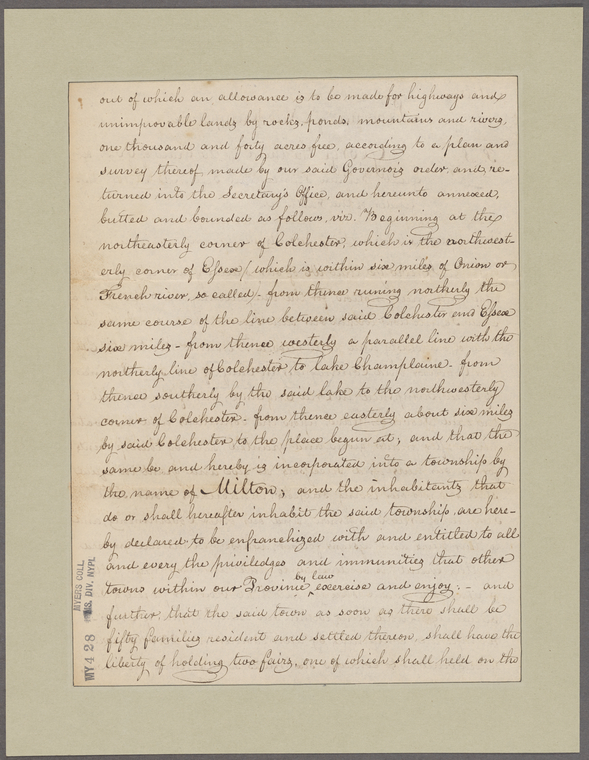 out of which an allowance is to be made for highways and
unimprovable lands by rocks, ponds, mountains and rivers,
one thousand and forty acres free, according to a plan and
survey thereof, made by our said Governors order, and, re-
turned into the Secretary's Office, and hereunto annexed,
butted and bounded as follows, viz. Beginning at the
northeasterly corner of Colchester, which is the northwest-
erly corner of Essex / which is within six miles of Onion or
French river, so called / - from thence runing northerly the
same course of the line between said Colchester and Essex
six miles - from thence westerly a parallel line with the
northerly line of Colchester to lake Champlaine - from
thence southerly by the said lake to the northwesterly
corner of Colchester - from thence easterly about six miles
by said Colchester to the place begun at; and that the
same be and hereby is incorporated into a township by
the name of Milton; and the inhabitants that
do or shall hereafter inhabit the said township, are here-
by declared to be enfranchized with and entitled to all
and every the priviledges and immunities that other
towns within our Province by law exercise and enjoy: - and
further, that the said town as soon as there shall be
fifty families resident and settled thereon, shall have the
liberty of holding two fairs, one of which shall held on the
MYERS COLL.
MSS. DIV. NYPL
MY 428